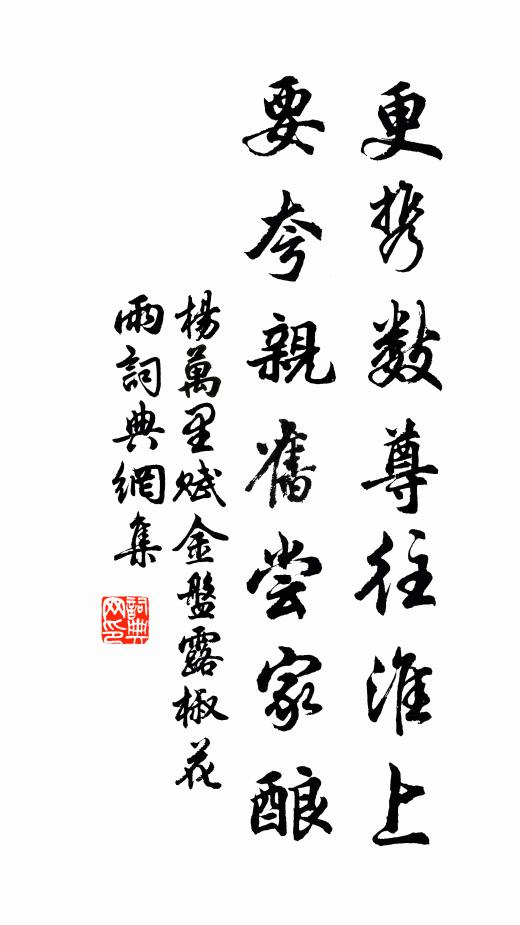 更携数尊往淮上
要夸親舊尝家酿
楊萬里赋金盤露椒花
雨詞典網集
詞典
网印